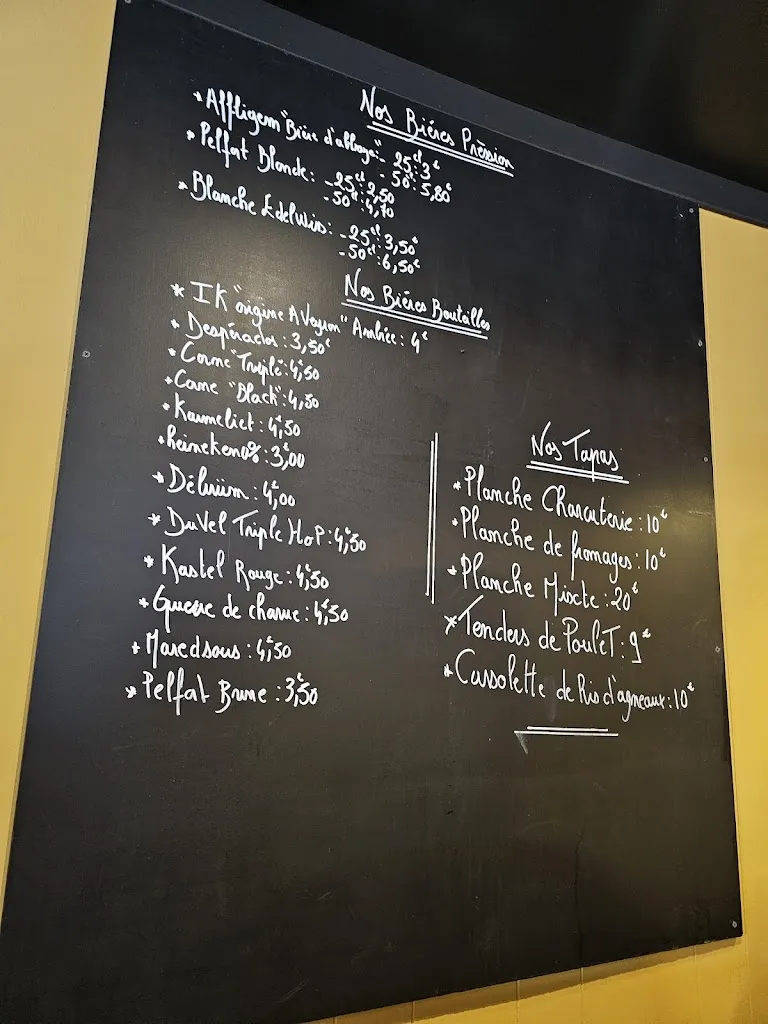 Nos Bières Préssion
*Affligem "Bière d'abbaye":- 25cl: 3€
- 50cl: 5,80€
*Pelfat Blonde: -25cl: 2,50
-50cl: 4,70
*Blanche Edelwiss: -25cl: 3,50€
-50cl: 6,50€
Nos Bières Bouteilles
* IK "origine AVeyron" Ambrée: 4€
* Despérados: 3,50€
*Corne "Triple": 4€,50
*Corne "Black": 4,50
*Kaumeliet: 4€,50
*heineken 0%: 3€,00
*Délirium: 4€,00
*DuVel Triple HoP: 4€,50
*Kastel Rouge: 4€,50
*Queue de charrue: 4€,50
*Maredsous: 4,50
*Pelfat Brune: 3€,50
Nos Tapas
*Planche Charcuterie: 10€
*Planche de fromages: 10€
*Planche Mixte: 20€
*Tenders de PouleT: 9€
*Cassolette de Ris d'agneaux: 10€